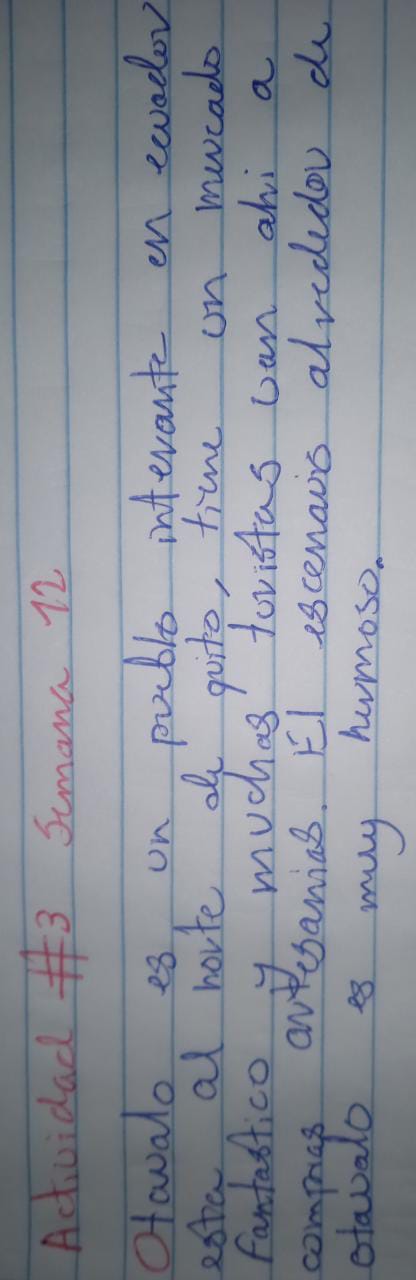 Actividad #3 Semana 12
Otavalo es un pueblo interante en ecuador
esta al norte de quito, tiene un mercado
fantastico y muchas turistas van ahi a
compras artesanias. El escenario alrededor de
otavalo es muy hermoso.